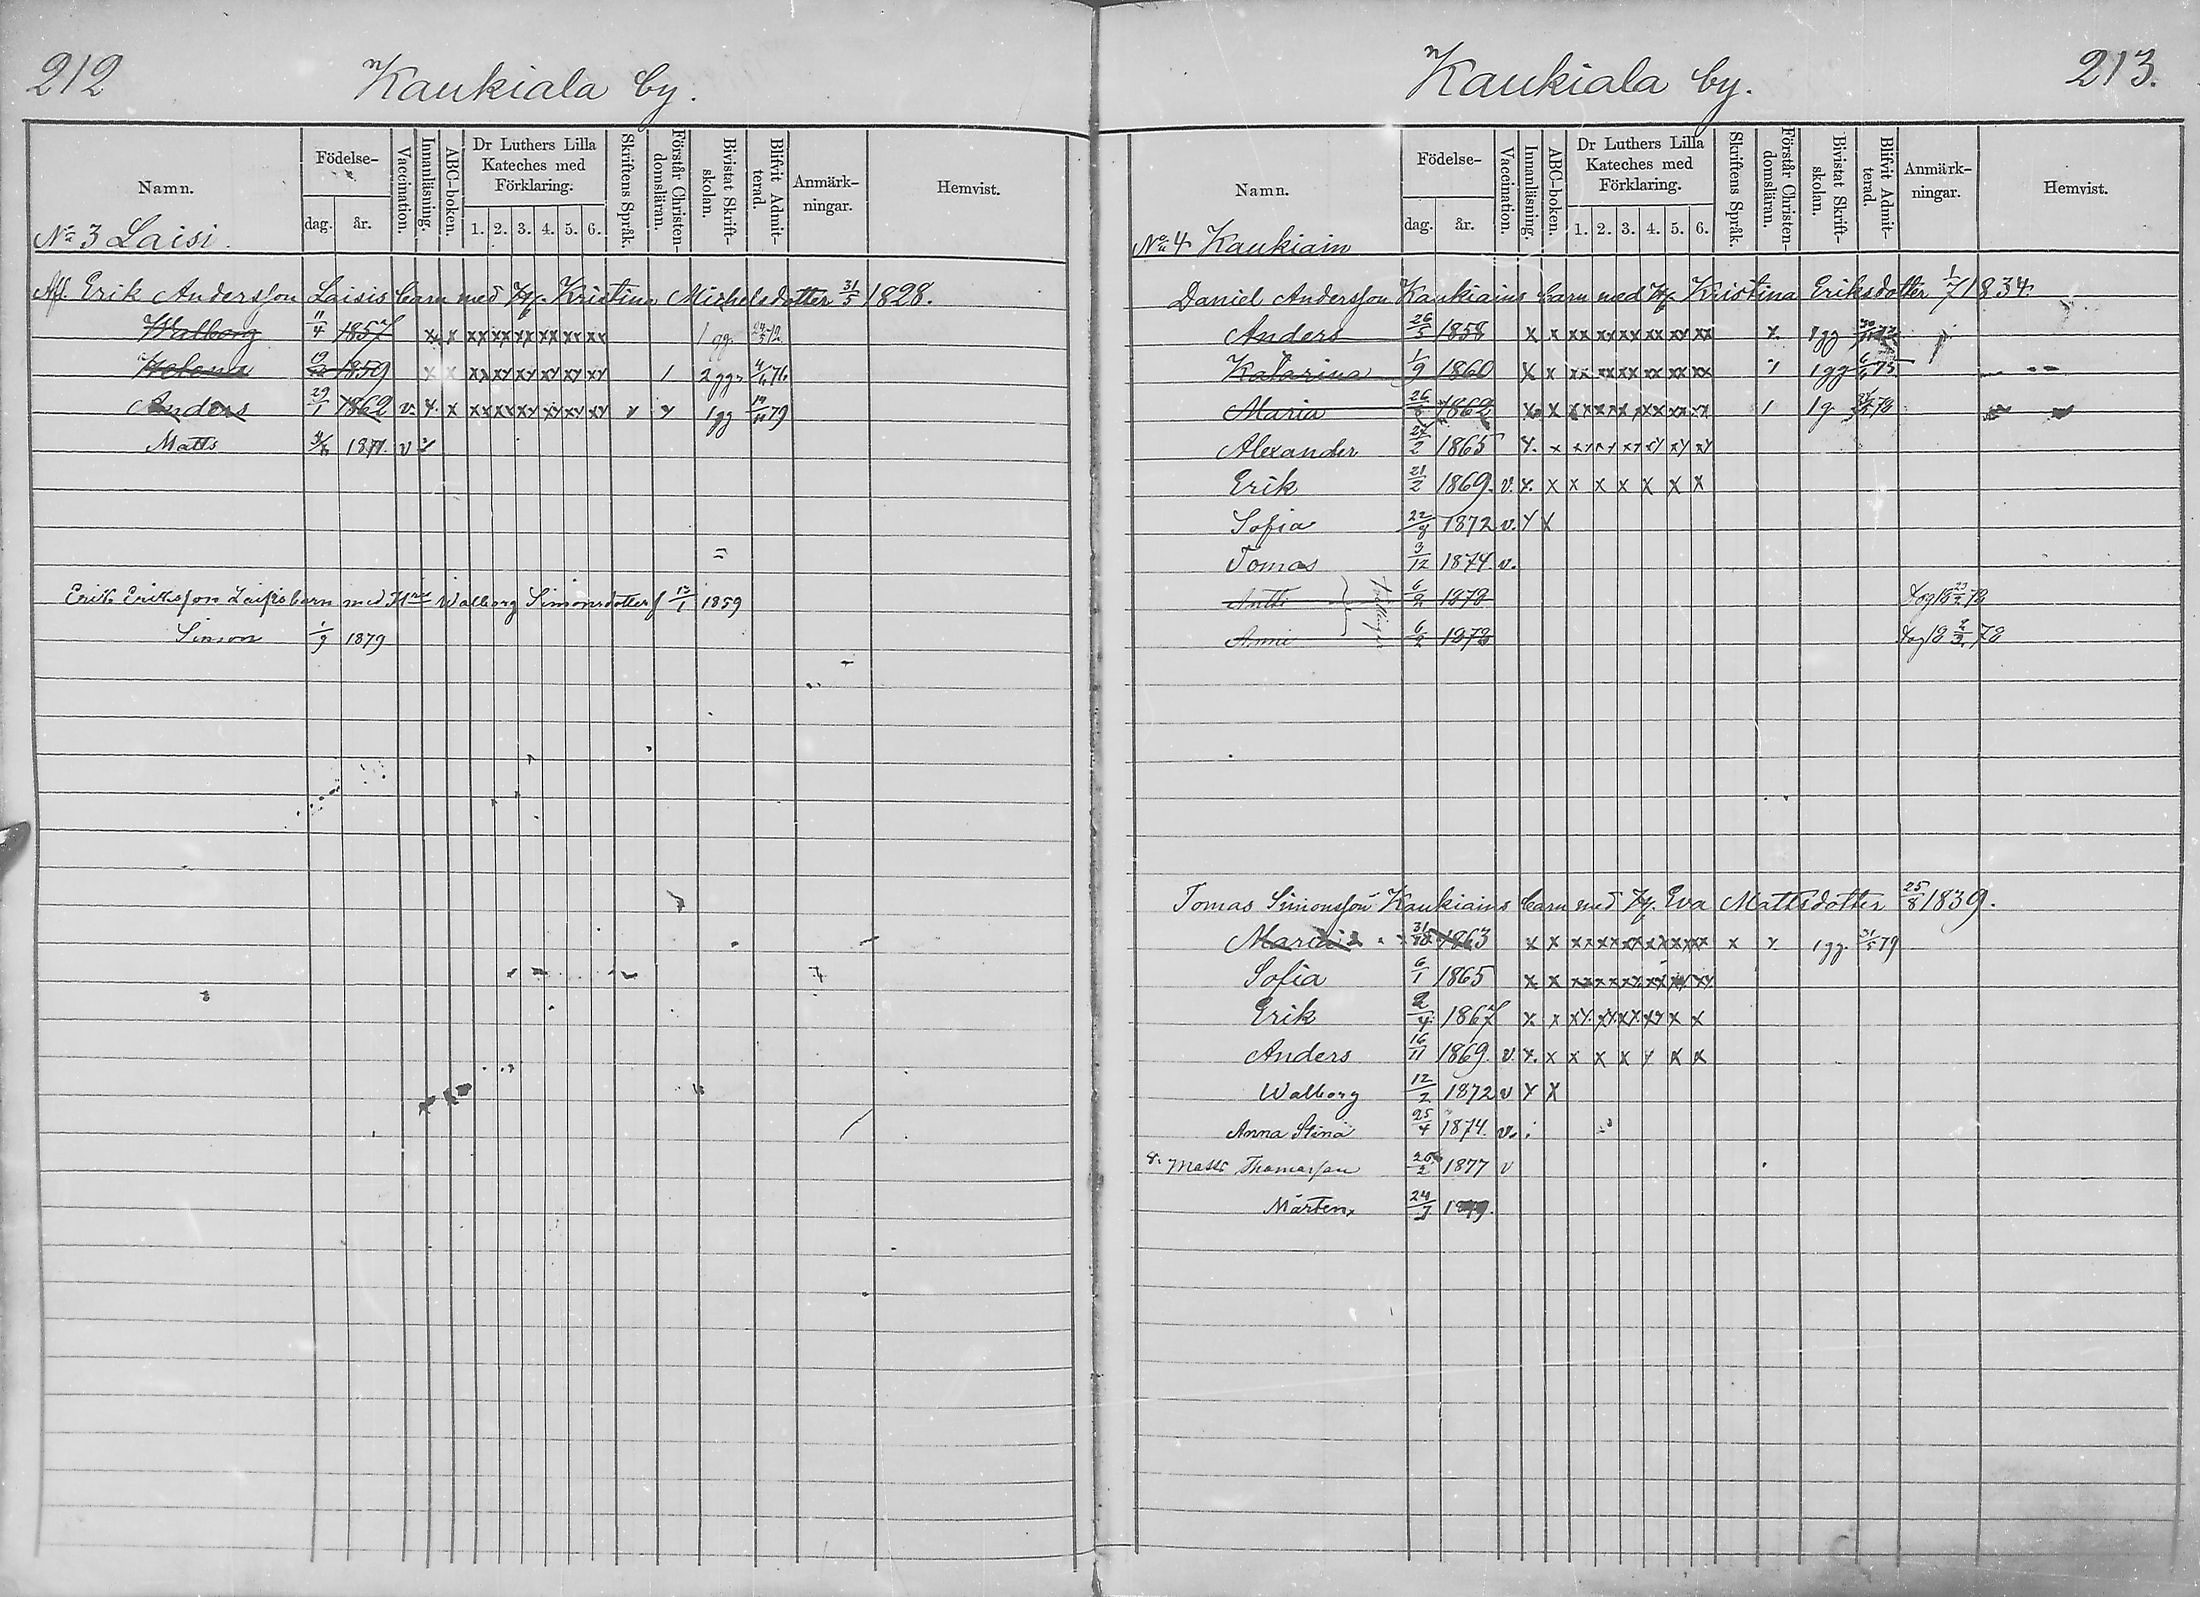 212
Kaukiala by.
Namn.
Födelse-
dag. år.
Vaccination.
Innanläsning.
ABC-boken.
Dr Luthers Lilla
Kateches med
Förklaring.
1. 2. 3. 4. 5. 6.
Skriftens Språk.
Förstår Christen-
domsläran.
Bivistat Skrift-
skolan.
Blifvit Admit-
terad.
Anmärk-
ningar.
Hemvist.
No 3 Laisi.
Afl. Erik Andersson Laisis barn med H. Kristina Michelsdotter 31/5 1828.
Walborg 11/4 1857 x x xx xx xx xx xx xx 1 gg.
Helena 1859 x x xx xx xx xx xx xx 1 2 gg. 4/6 76
Anders 29/1 1862 v. x x xx xx xx xx xx xx x x 1 gg 79
Matts 1871. v x
Erik Eriksson Laisis barn med Walborg Simonsdotter 1859
Simon 1/9 1879
Kaukiala by.
213.
Namn.
Födelse-
dag. år.
Vaccination.
Innanläsning.
ABC-boken.
Dr Luthers Lilla
Kateches med
Förklaring.
1. 2. 3. 4. 5. 6.
Skriftens Språk.
Förstår Christen-
domsläran.
Bivistat Skrift-
skolan.
Blifvit Admit-
terad.
Anmärk-
ningar.
Hemvist.
No 4 Kaukiain
Daniel Andersson Kaukiains barn med H. Kristina Eriksdotter 1/7 1834.
Anders 26/5 1858 x x xx xx xx xx xx xx x 1 gg
Katarina 1/9 1860 x x xx xx xx xx xx xx x 1 gg 75
Maria 1862 x x xx xx xx xx xx xx 1 1 g.
Alexander 1865 x. x xx xx xx xx xx xx
Erik 21/2 1869. v. x. x x x x x x x
Sofia 22/9 1872 v. x x
Tomas 3/12 1874 v.
Antti 6/2 1878
Anni 6/2 1878
Tomas Simonsson Kaukiains barn med H. Eva Mattsdotter 25/8 1839.
Maria 1863 x x xx xx xx xx xx xx x x 1 gg. 31/5 79
Sofia 6/1 1865 x x xx xx xx xx xx xx
Erik 1867 x. x xx xx xx xx x x
Anders 16/11 1869. v. x. x x x x x x x
Walborg 12/2 1872 v x x
Anna Stina 25/4 1874. v.
Matts Thomasson 1877 v
Mårten